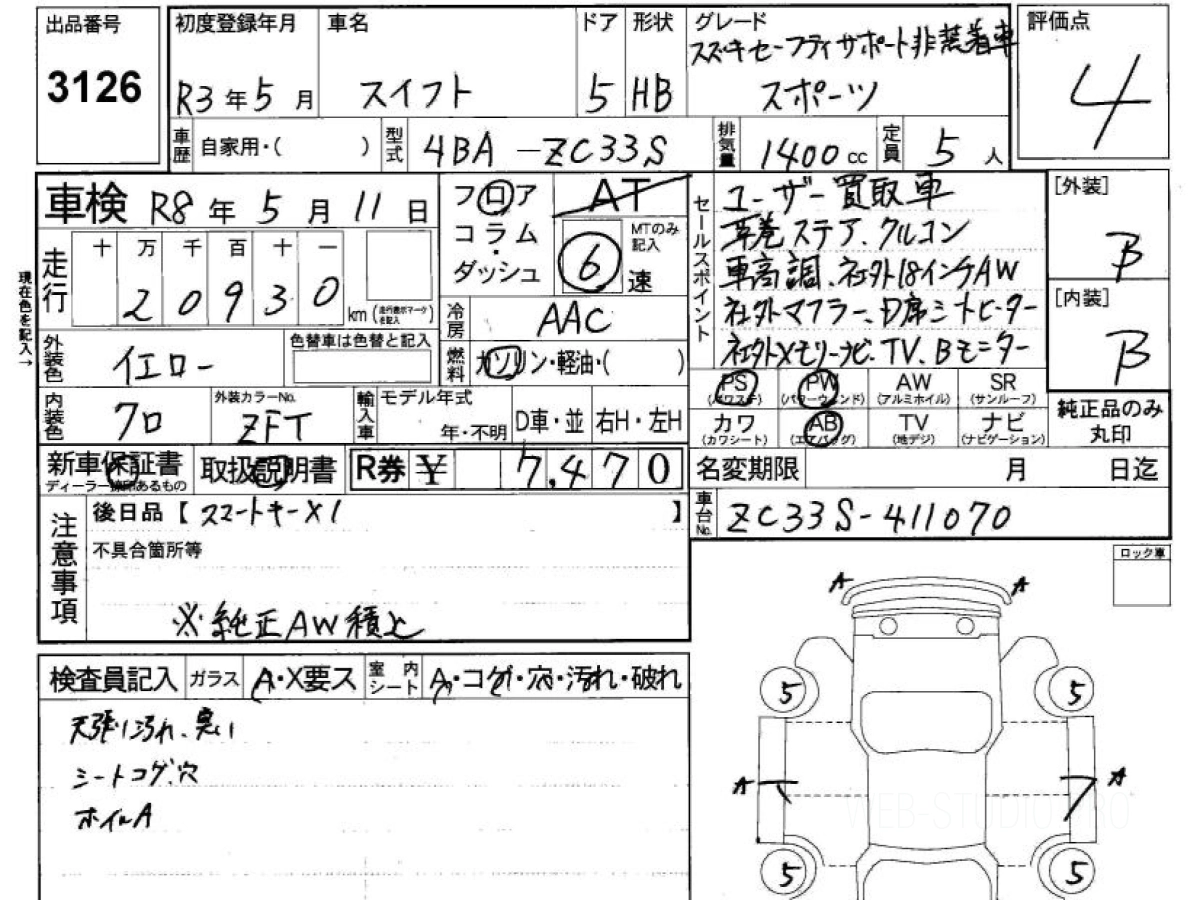 出品番号
3126
初度登録年月 車名 ドア 形状 グレード
R3年5月 スイフト 5 HB スズキセーフティサポート非装着車
スポーツ
評価点
4
車歴 自家用・( ) 型式 4BA-ZC33S 排気量 1400cc 定員 5人
車検 R8年5月11日
フロア
コラム
ダッシュ
AT
6速
MTのみ記入
走行 十万千百十一
20930 km
(走行表示マーク を記入)
現在色を記入→
冷房 AAC
外装色 イエロー
色替車は色替と記入
燃料 ガソリン・軽油・( )
内装色 クロ
外装カラーNo.
ZFT
輸入車 モデル年式
年・不明 D車・並 右H・左H
セールスポイント
ユーザー買取車
革巻ステア、クルコン
車高調、社外18インチAW
社外マフラー、D席シートヒーター
社外メモリーナビ、TV、Bモニター
[外装]
B
[内装]
B
PS PW AW SR
(パワステ) (パワーウィンド) (アルミホイル) (サンルーフ)
カワ AB TV ナビ
(カワシート) (エアバッグ) (地デジ) (ナビゲーション)
純正品のみ
丸印
新車保証書
ディーラー捺印あるもの
取扱説明書
R券 ¥ 7,470
名変期限 月 日迄
車台No. ZC33S-411070
注意事項
後日品【スマートキーX1 】
不具合箇所等
※純正AW積込
ロック車
検査員記入 ガラス A・X要ス 室内シート A・コゲ・穴・汚れ・破れ
天張り汚れ、臭い
シートコゲ、穴
ホイルA
A A
5 5
A A
5 5
WEB-STUDIO PRO